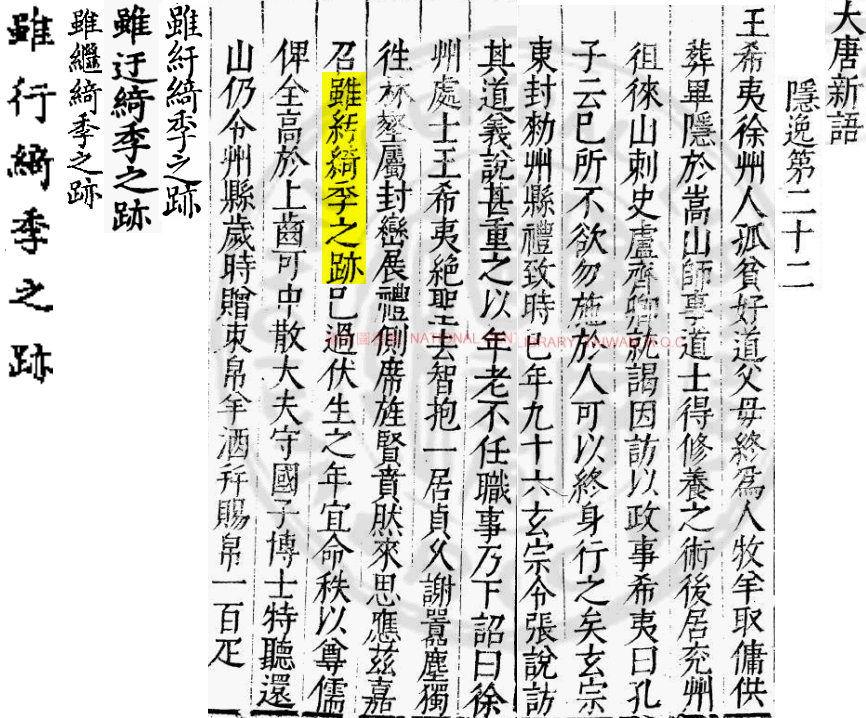 大唐新語
隱逸第二十二
王希夷徐州人孤貧好道父母終爲人牧羊取傭供
葬畢隱於嵩山師事道士得修養之術後居兖州
徂徠山刺史盧齊卿就謁因訪以政事希夷曰孔
子云已所不欲勿施於人可以終身行之矣玄宗
東封勑州縣禮致時已年九十六玄宗令張說訪
其道義說甚重之以年老不任職事乃下詔曰徐
州處士王希夷絶聖去智抱一居貞久謝囂塵獨
徃林壑屬封巒展禮側席旌賢賁然來思應茲嘉
召雖紆綺季之跡已過伏生之年宜命秩以尊儒
俾全高於上齒可中散大夫守國子博士特聽還
山仍令州縣歲時贈束帛羊酒并賜帛一百疋
雖紆綺季之跡
雖迂綺季之跡
雖繼綺季之跡
雖行綺季之跡